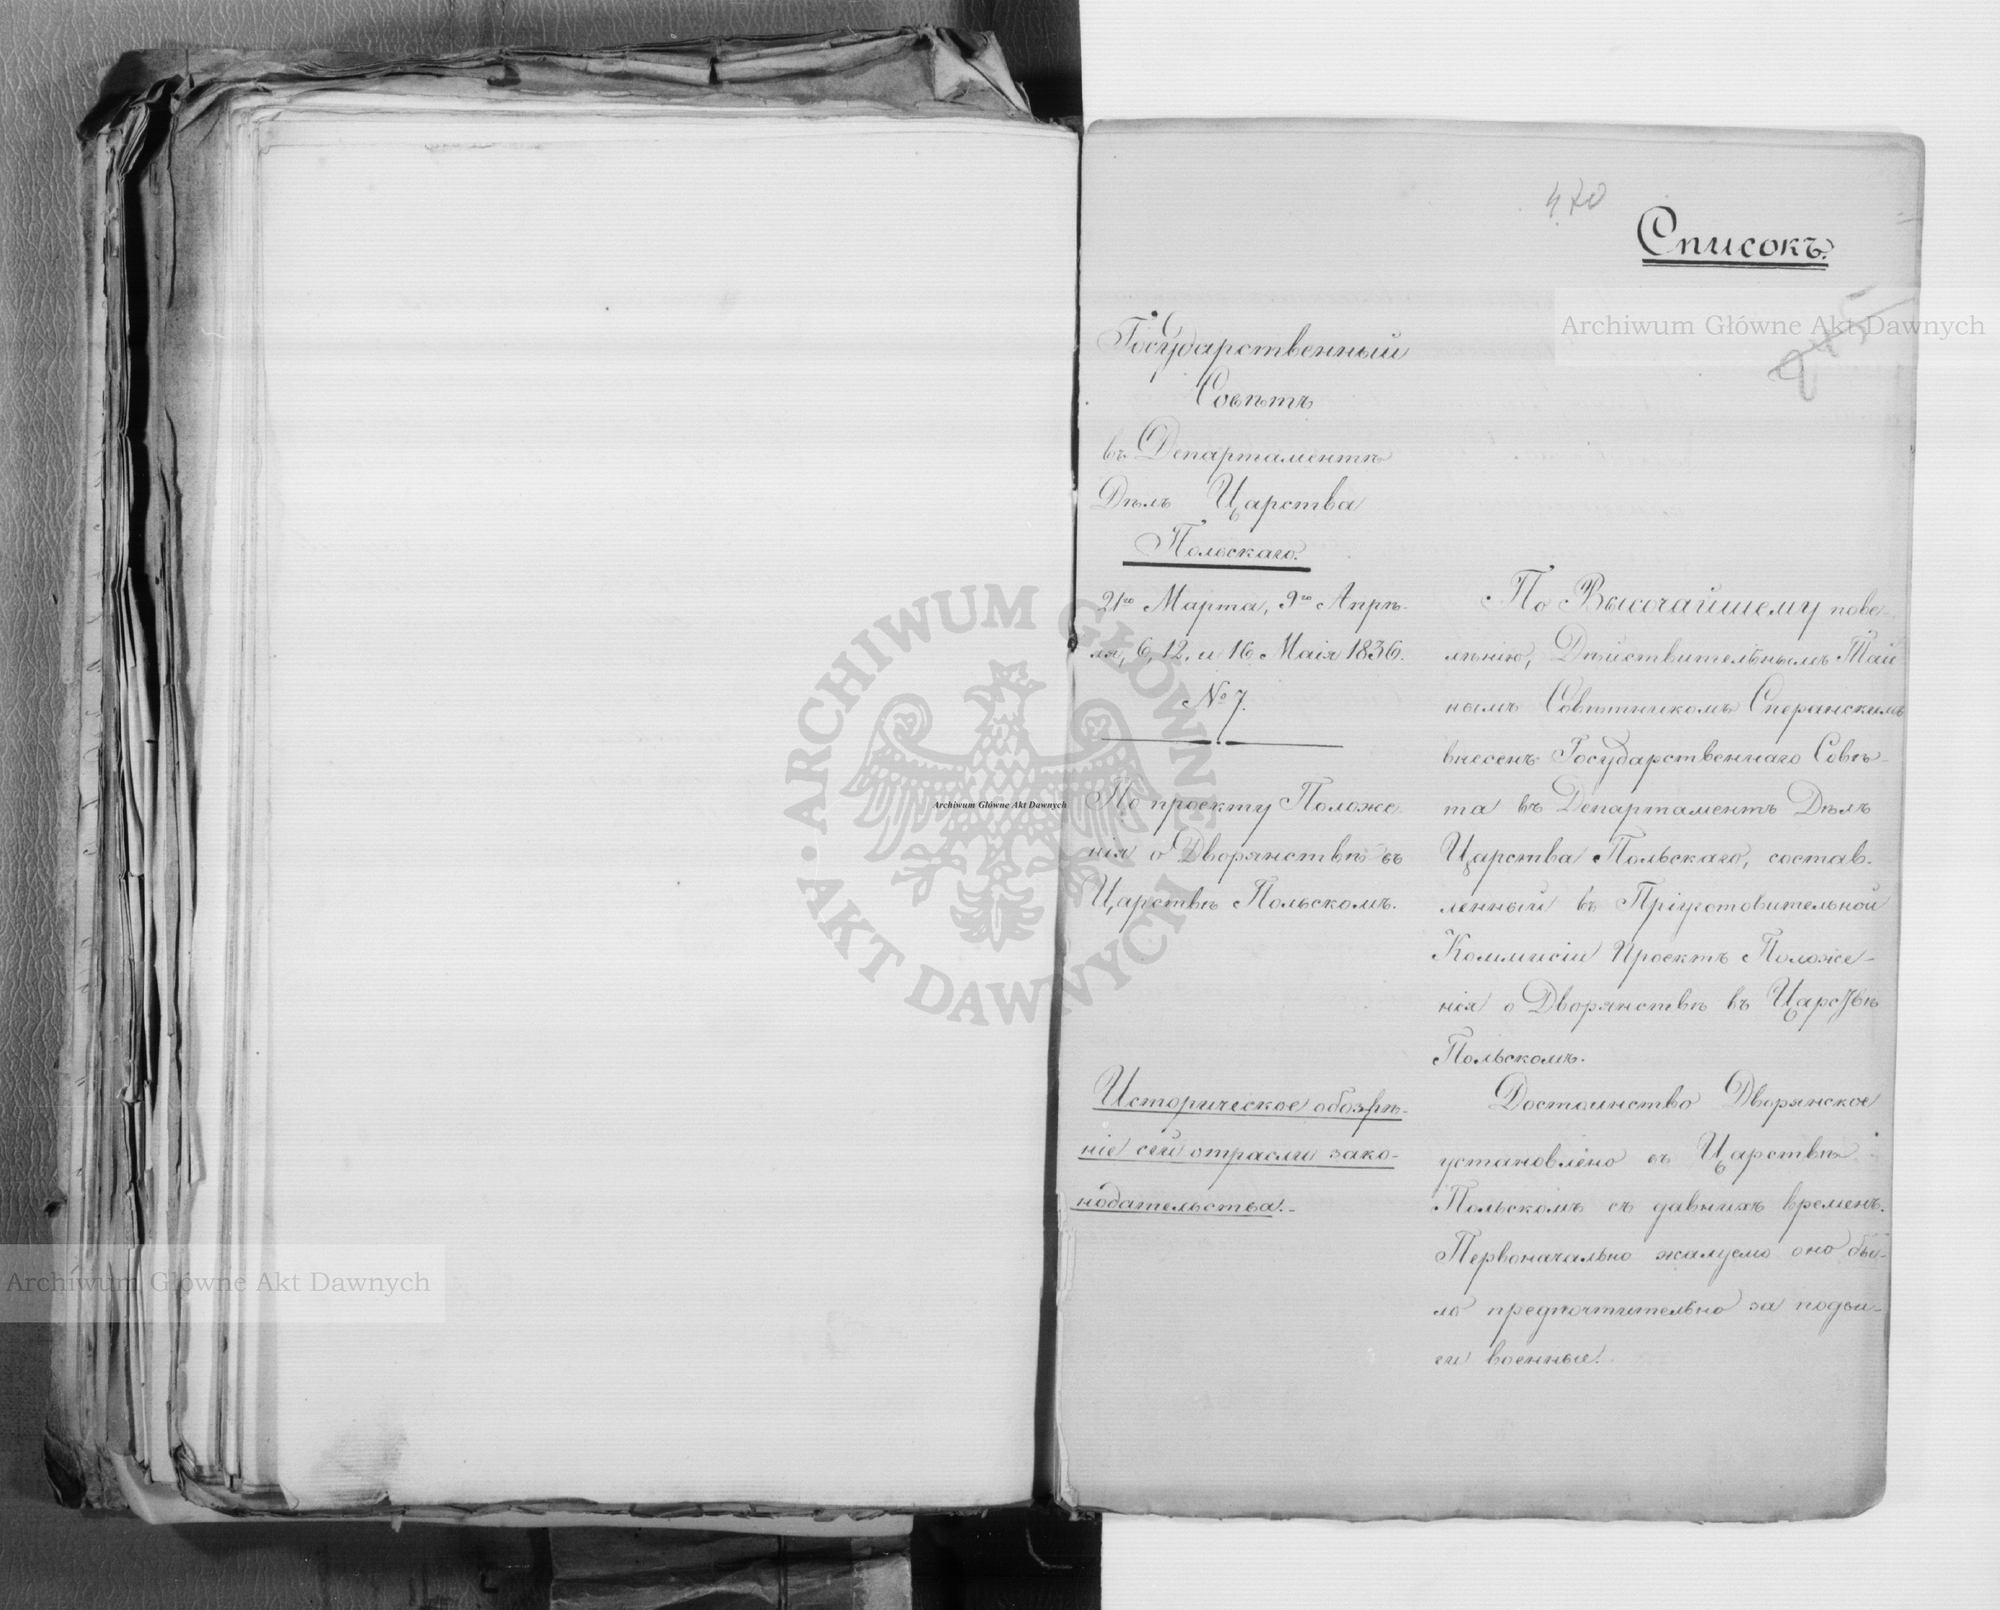 470
Списокъ.
Государственный
Совѣтъ
въ Департаментѣ
Дѣлъ Царства
Польскаго.
21го Марта, 9го Апрѣ-
ля, 6, 12, и 16 Маія 1836.
№ 7.
По проекту Положе-
нія о Дворянствѣ въ
Царствѣ Польскомъ.
Историческое обозрѣ-
ніе сей отрасли зако-
нодательства.-
По Высочайшему пове-
лѣнію, Дѣйствительнымъ Тай-
нымъ Совѣтникомъ Сперанскимъ
внесенъ Государственнаго Совѣ-
та въ Департаментъ Дѣлъ
Царства Польскаго, состав-
ленный въ Пріуготовительной
Коммисіи Проектъ Положе-
нія о Дворянствѣ въ Царствѣ
Польскомъ.
Достоинство Дворянское
установлено въ Царствѣ
Польскомъ съ давнихъ временъ.
Первоначально жалуемо оно бы-
ло предпочтительно за подви-
ги военные.
Archiwum Główne Akt Dawnych
Archiwum Główne Akt Dawnych
Archiwum Główne Akt Dawnych
ARCHIWUM GŁÓWNE AKT DAWNYCH